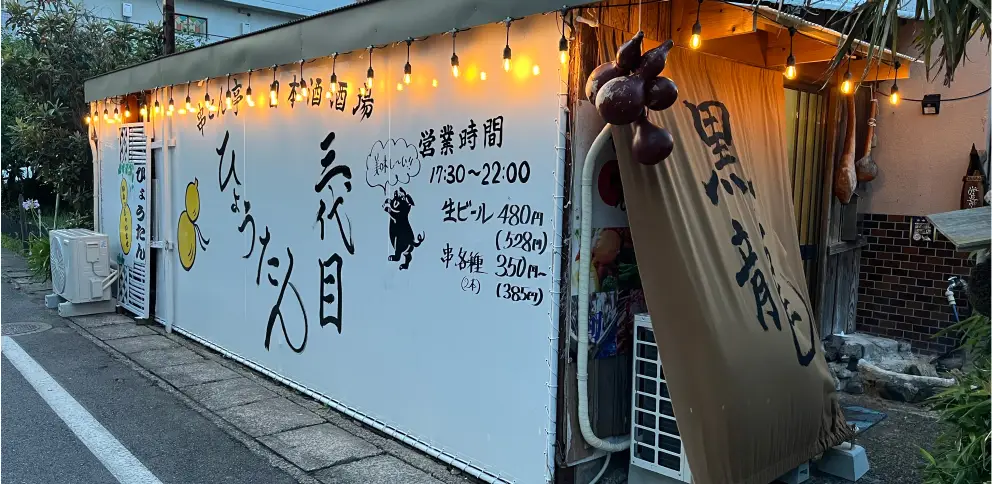 おでん亭 日本酒酒場
三代目
ひょうたん
ひょうたん
美味し〜い!!
営業時間
17:30〜22:00
生ビール 480円
(528円)
串各種 350円〜
(2本) (385円)
黒龍